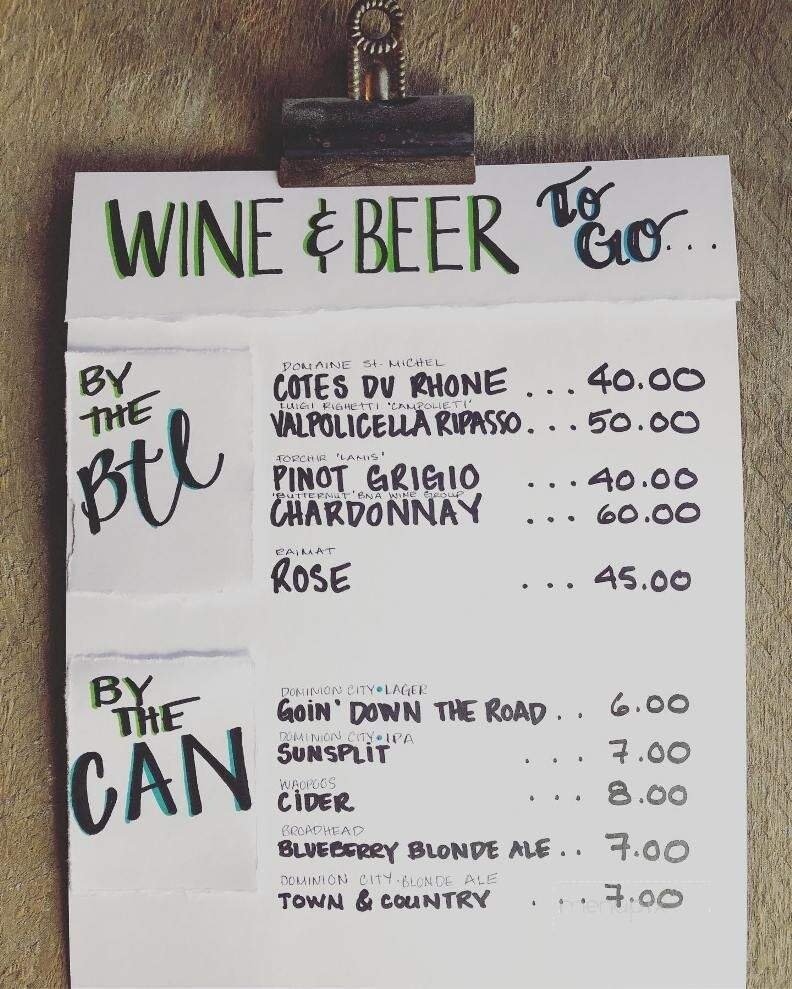 WINE & BEER TO GO...
BY THE Btl
DOMAINE St-MICHEL
COTES DU RHONE ... 40.00
LUIGI RIGHETTI 'CAMPOLIETI'
VALPOLICELLA RIPASSO... 50.00
TORCHIR 'LAMIS'
PINOT GRIGIO ... 40.00
'BUTTERNUT' BNA WINE GROUP
CHARDONNAY ... 60.00
RAIMAT
ROSE ... 45.00
BY THE CAN
DOMINION CITY•LAGER
GOIN' DOWN THE ROAD .. 6.00
DOMINION CITY•IPA
SUNSPLIT ... 7.00
WAOPOOS
CIDER ... 8.00
BROADHEAD
BLUEBERRY BLONDE ALE .. 7.00
DOMINION CITY·BLONDE ALE
TOWN & COUNTRY ... 7.00